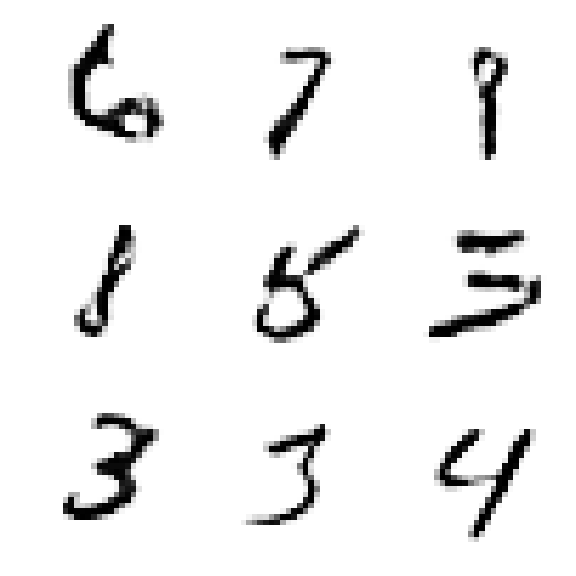 6 7 9
8 5 5
3 3 4